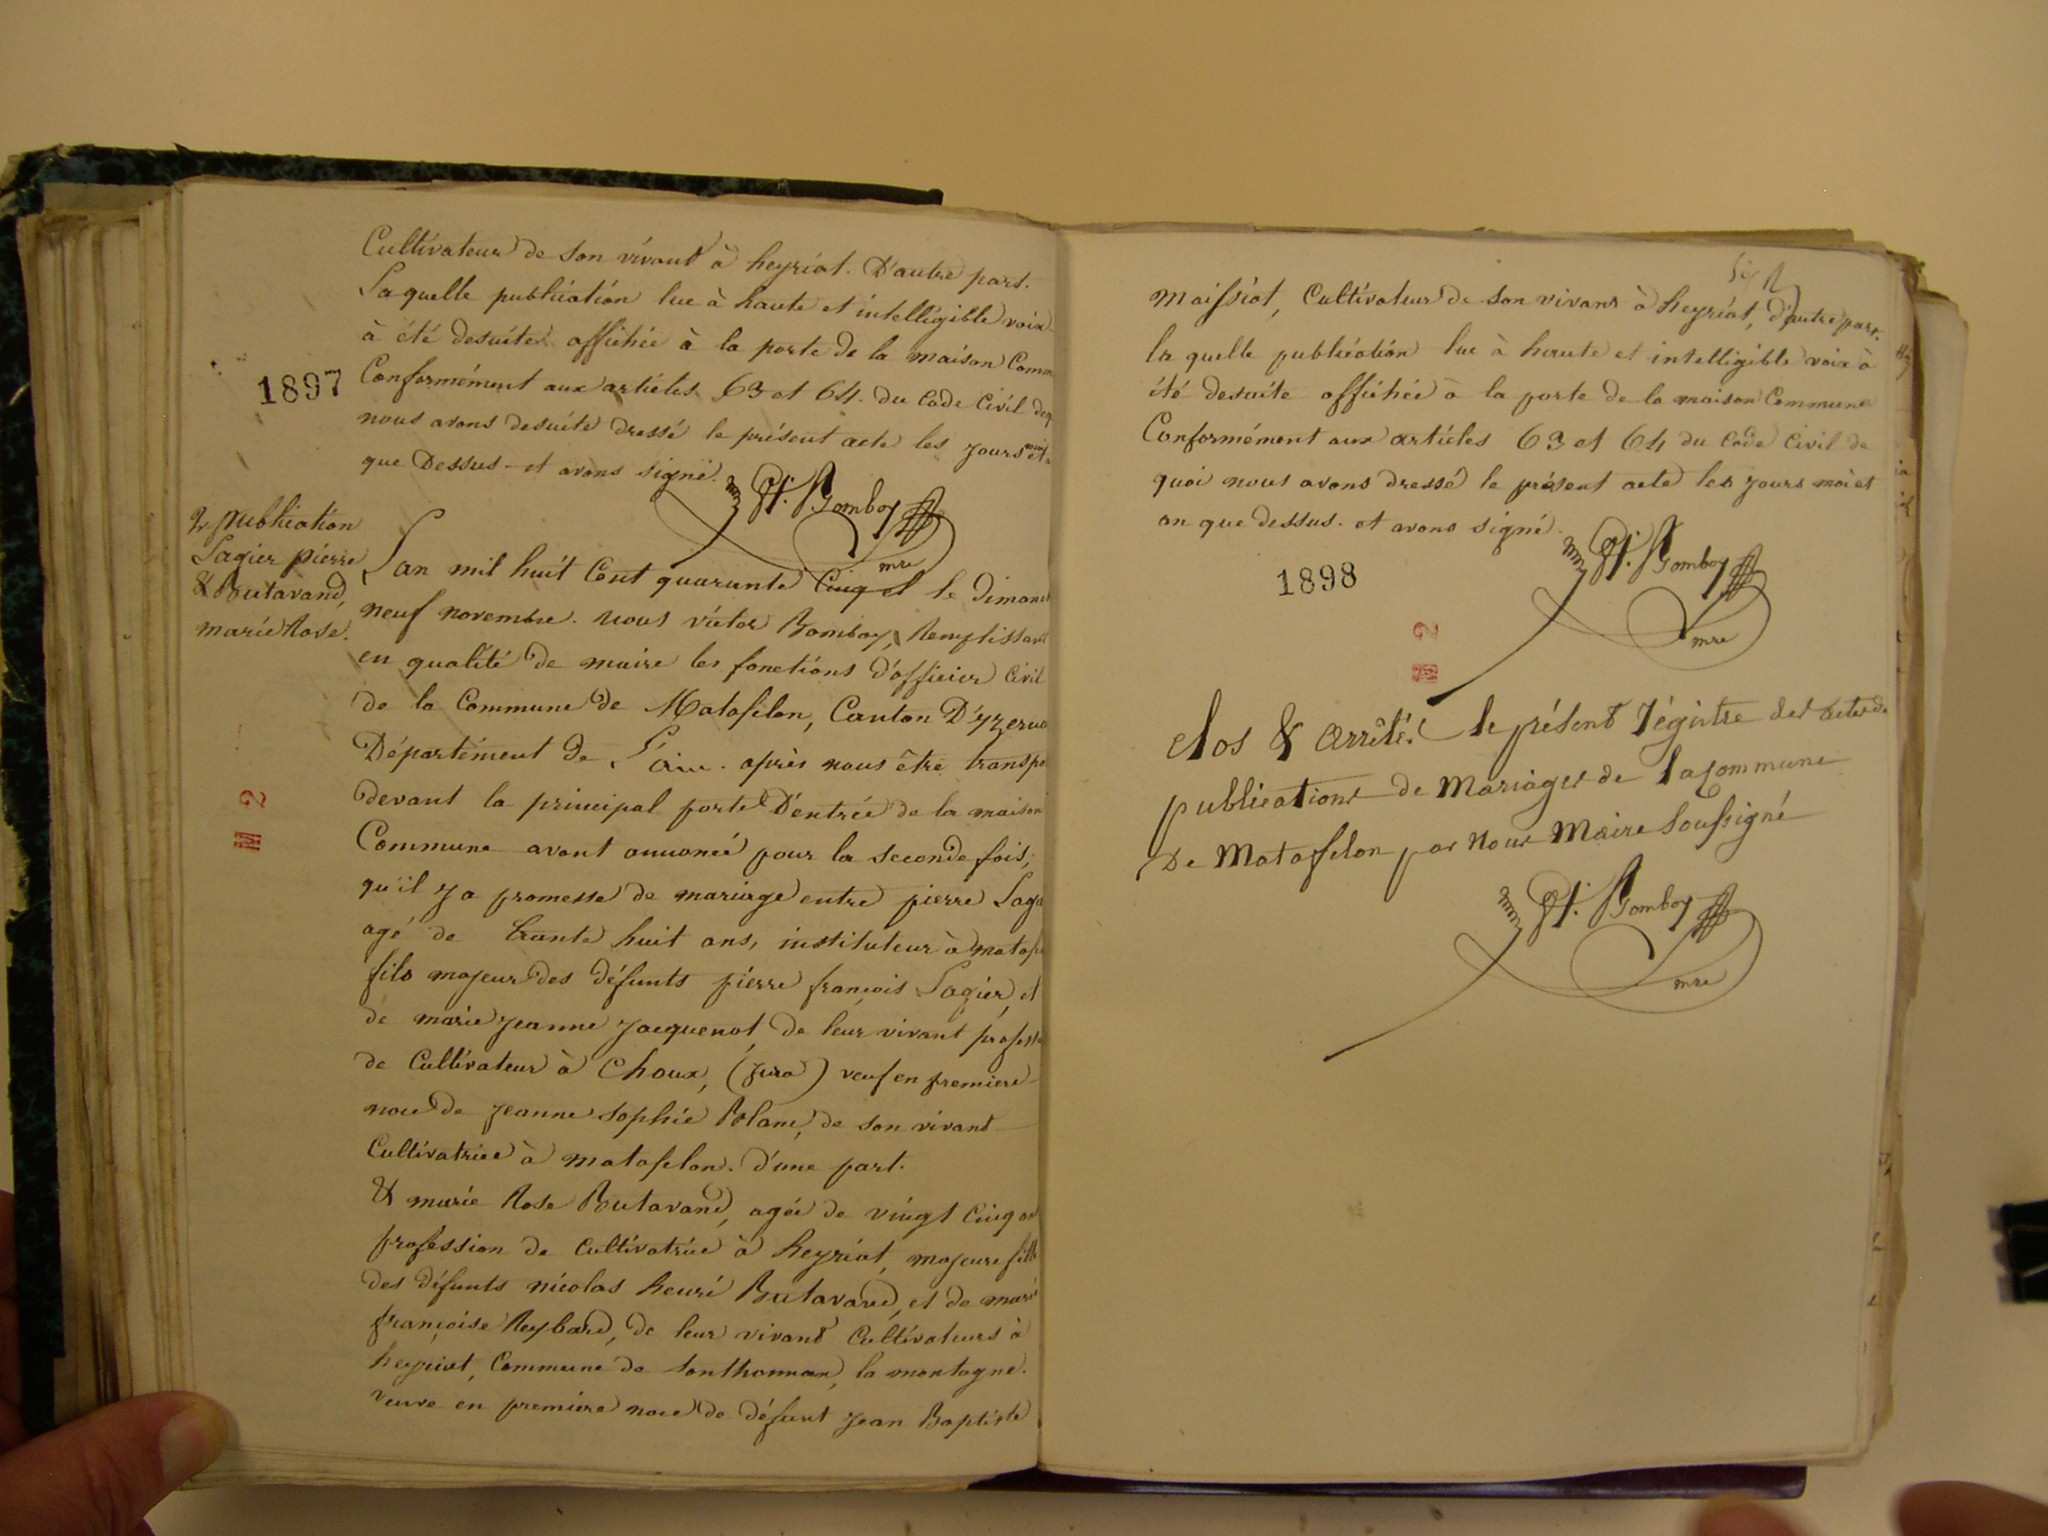 Cultivateur de son vivant à heyriat. D'autre part.
Laquelle publication lue à haute et intelligible voix
à été desuite affichée à la porte de la maison Comm
Conformément aux articles 63 et 64. du Code Civil deq
nous avons desuite dressé le présent acte les jours mois et
que Dessus et avons signé.
Vt. Bomboy
mre
1897
2e publication
Lagier pierre
& Butavand,
marie Rose.
L'an mil huit Cent quarante Cinq et le dimanch
neuf novembre. nous victor Bomboy, Remplissant
en qualité de maire les fonctions d'officier Civil
de la Commune de Matafelon, Canton D'yzernor
Département de L'ain. après nous être transpo
devant la principal porte D'entrée de la maison
Commune avont annoncé pour la seconde fois,
qu'il y a promesse de mariage entre pierre Lagi
agé de trante huit ans, instituteur à mataf
fils majeur des défunts pierre françois Lagier, et
de marie jeanne jacquenot, de leur vivant profess
de Cultivateur à Choux, (jura) veuf en premiere
noce de jeanne sophie Blanc, de son vivant
Cultivatrice à matafelon. d'une part.
& marie Rose Butavand, agée de vingt Cinq an
profession de Cultivatrice à heyriat, majeure fille
des défunts nicolas henri Butavand, et de marie
françoise Reybard, de leur vivant Cultivateurs à
heyriat, Commune de Sonthonnan, la montagne.
veuve en premiere noce de défunt jean Baptiste
M 2
maissiat, Cultivateur de son vivant à heyriat, d'autre part.
la quelle publication lue à haute et intelligible voix à
été desuite affichée à la porte de la maison Commune
Conformément aux articles 63 et 64 du Code Civil de
quoi nous avons dressé le présent acte les jours mois et
an que dessus. et avons signé.
Vt. Bomboy
mre
1898
M 2
clos & arrêté le présent régistre des actes de
publications de Mariages de la Commune
De Matafelon par Nous Maire Soussigné
Vt. Bomboy
mre